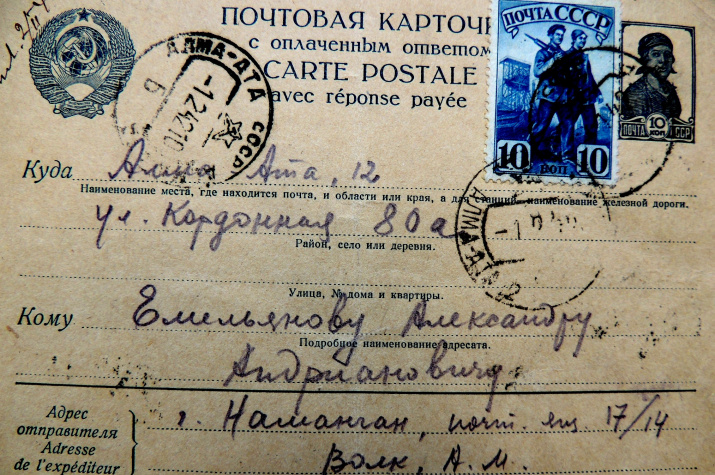 ПОЧТОВАЯ КАРТОЧК
с оплаченным ответом
CARTE POSTALE
avec réponse payée
АЛМА-АТА СССР
-1.2.42.10
Б
ПОЧТА СССР
10 КОП 10
ПОЧТА 10 КОП ССР
АЛМА-АТА
Куда Алма Ата, 12
Наименование места, где находится почта, и области или края, а для станций, наименование железной дороги.
ул. Кордонная 80а
Район, село или деревня.
Улица, № дома и квартиры.
Кому Емельянову Александру
Подробное наименование адресата.
Андриановичу
Адрес
отправителя
Adresse
de l'expéditeur
г. Наманган, почт. ящ 17/14
Волк, А. М.